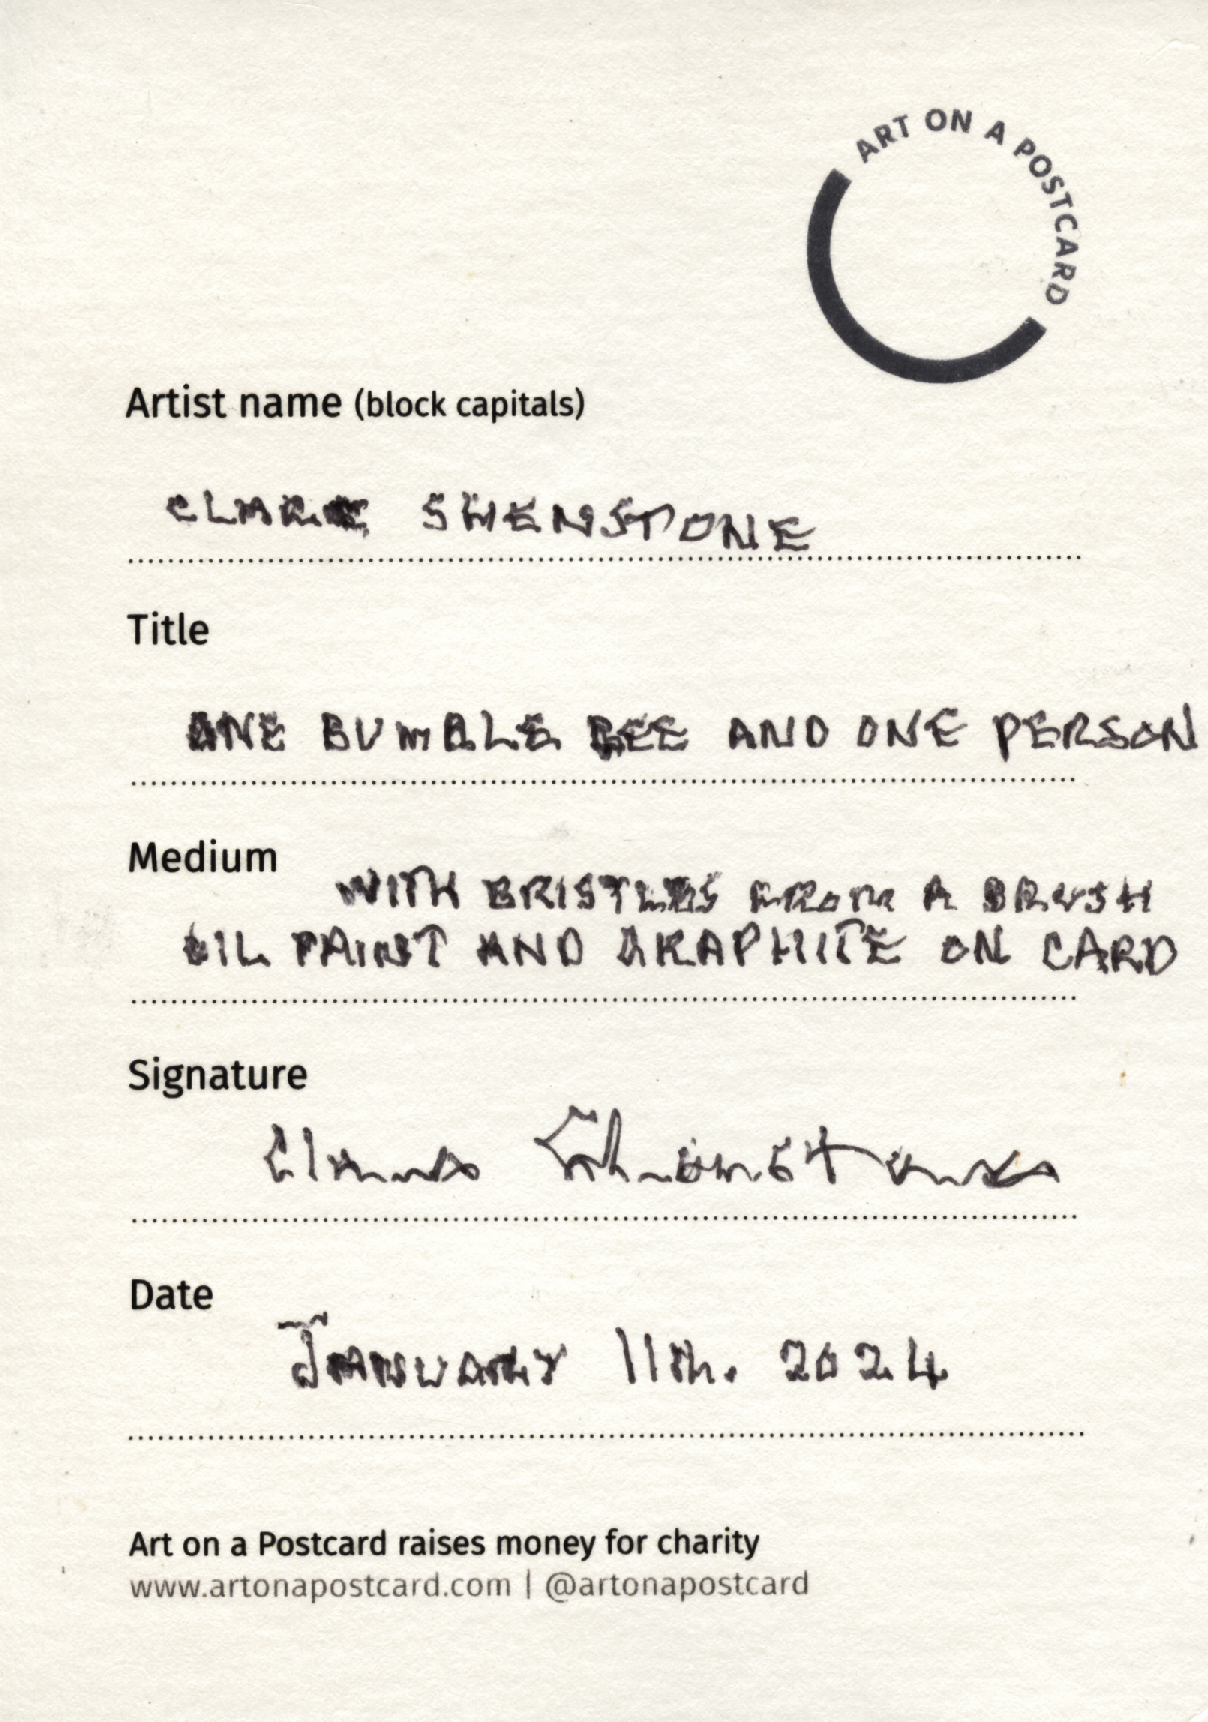 ART ON A POSTCARD
Artist name (block capitals)
CLARE SHENSTONE
Title
ONE BUMBLE BEE AND ONE PERSON
Medium
WITH BRISTLES FROM A BRUSH
OIL PAINT AND GRAPHITE ON CARD
Signature
Clare Shenstone
Date
JANUARY 11th. 2024
Art on a Postcard raises money for charity
www.artonapostcard.com | @artonapostcard